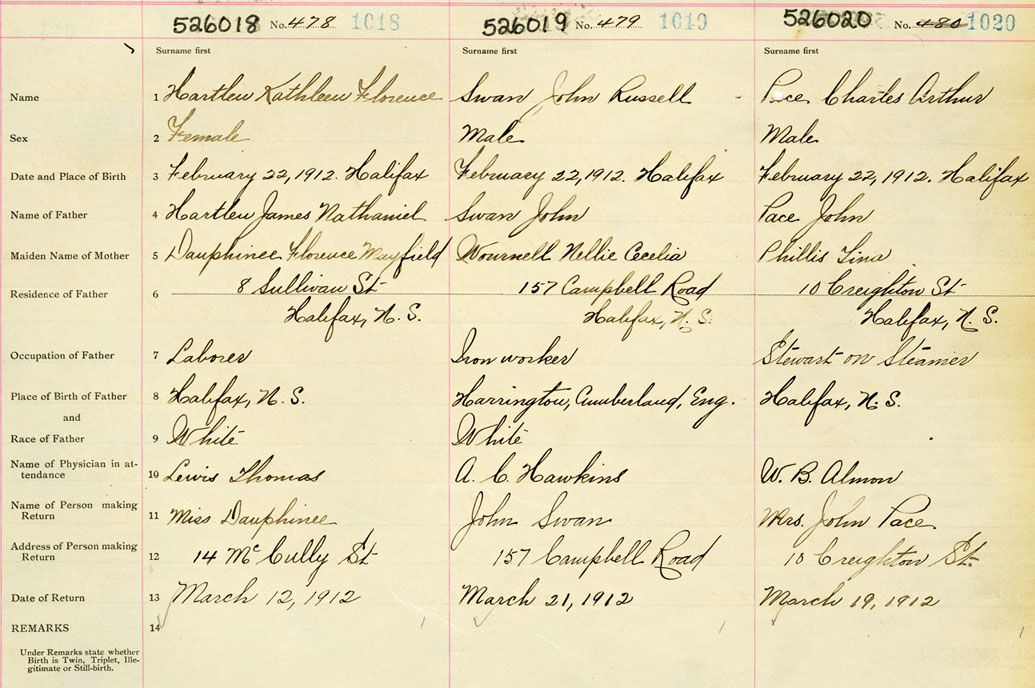 526018 No. 478 1018 526019 No. 479 1019 526020 No. 480 1020
Surname first Surname first Surname first
Name 1 Hartlen Kathleen Florence Swan John Russell Pace Charles Arthur
Sex 2 Female Male Male
Date and Place of Birth 3 February 22, 1912. Halifax February 22, 1912. Halifax February 22, 1912. Halifax
Name of Father 4 Hartlen James Nathaniel Swan John Pace John
Maiden Name of Mother 5 Dauphinee Florence Mayfield Wournell Nellie Cecelia Phillis Lina
Residence of Father 6 8 Sullivan St 157 Campbell Road 10 Creighton St
Halifax, N. S. Halifax, N. S. Halifax, N. S.
Occupation of Father 7 Laborer Iron worker Stewart on Steamer
Place of Birth of Father 8 Halifax, N. S. Harrington, Cumberland, Eng. Halifax, N. S.
and
Race of Father 9 White White
Name of Physician in at-
tendance 10 Lewis Thomas A. C. Hawkins W. B. Almon
Name of Person making
Return 11 Miss Dauphinee John Swan Mrs. John Pace
Address of Person making
Return 12 14 McCully St 157 Campbell Road 10 Creighton St.
Date of Return 13 March 12, 1912 March 21, 1912 March 19, 1912
REMARKS 14
Under Remarks state whether
Birth is Twin, Triplet, Ille-
gitimate or Still-birth.